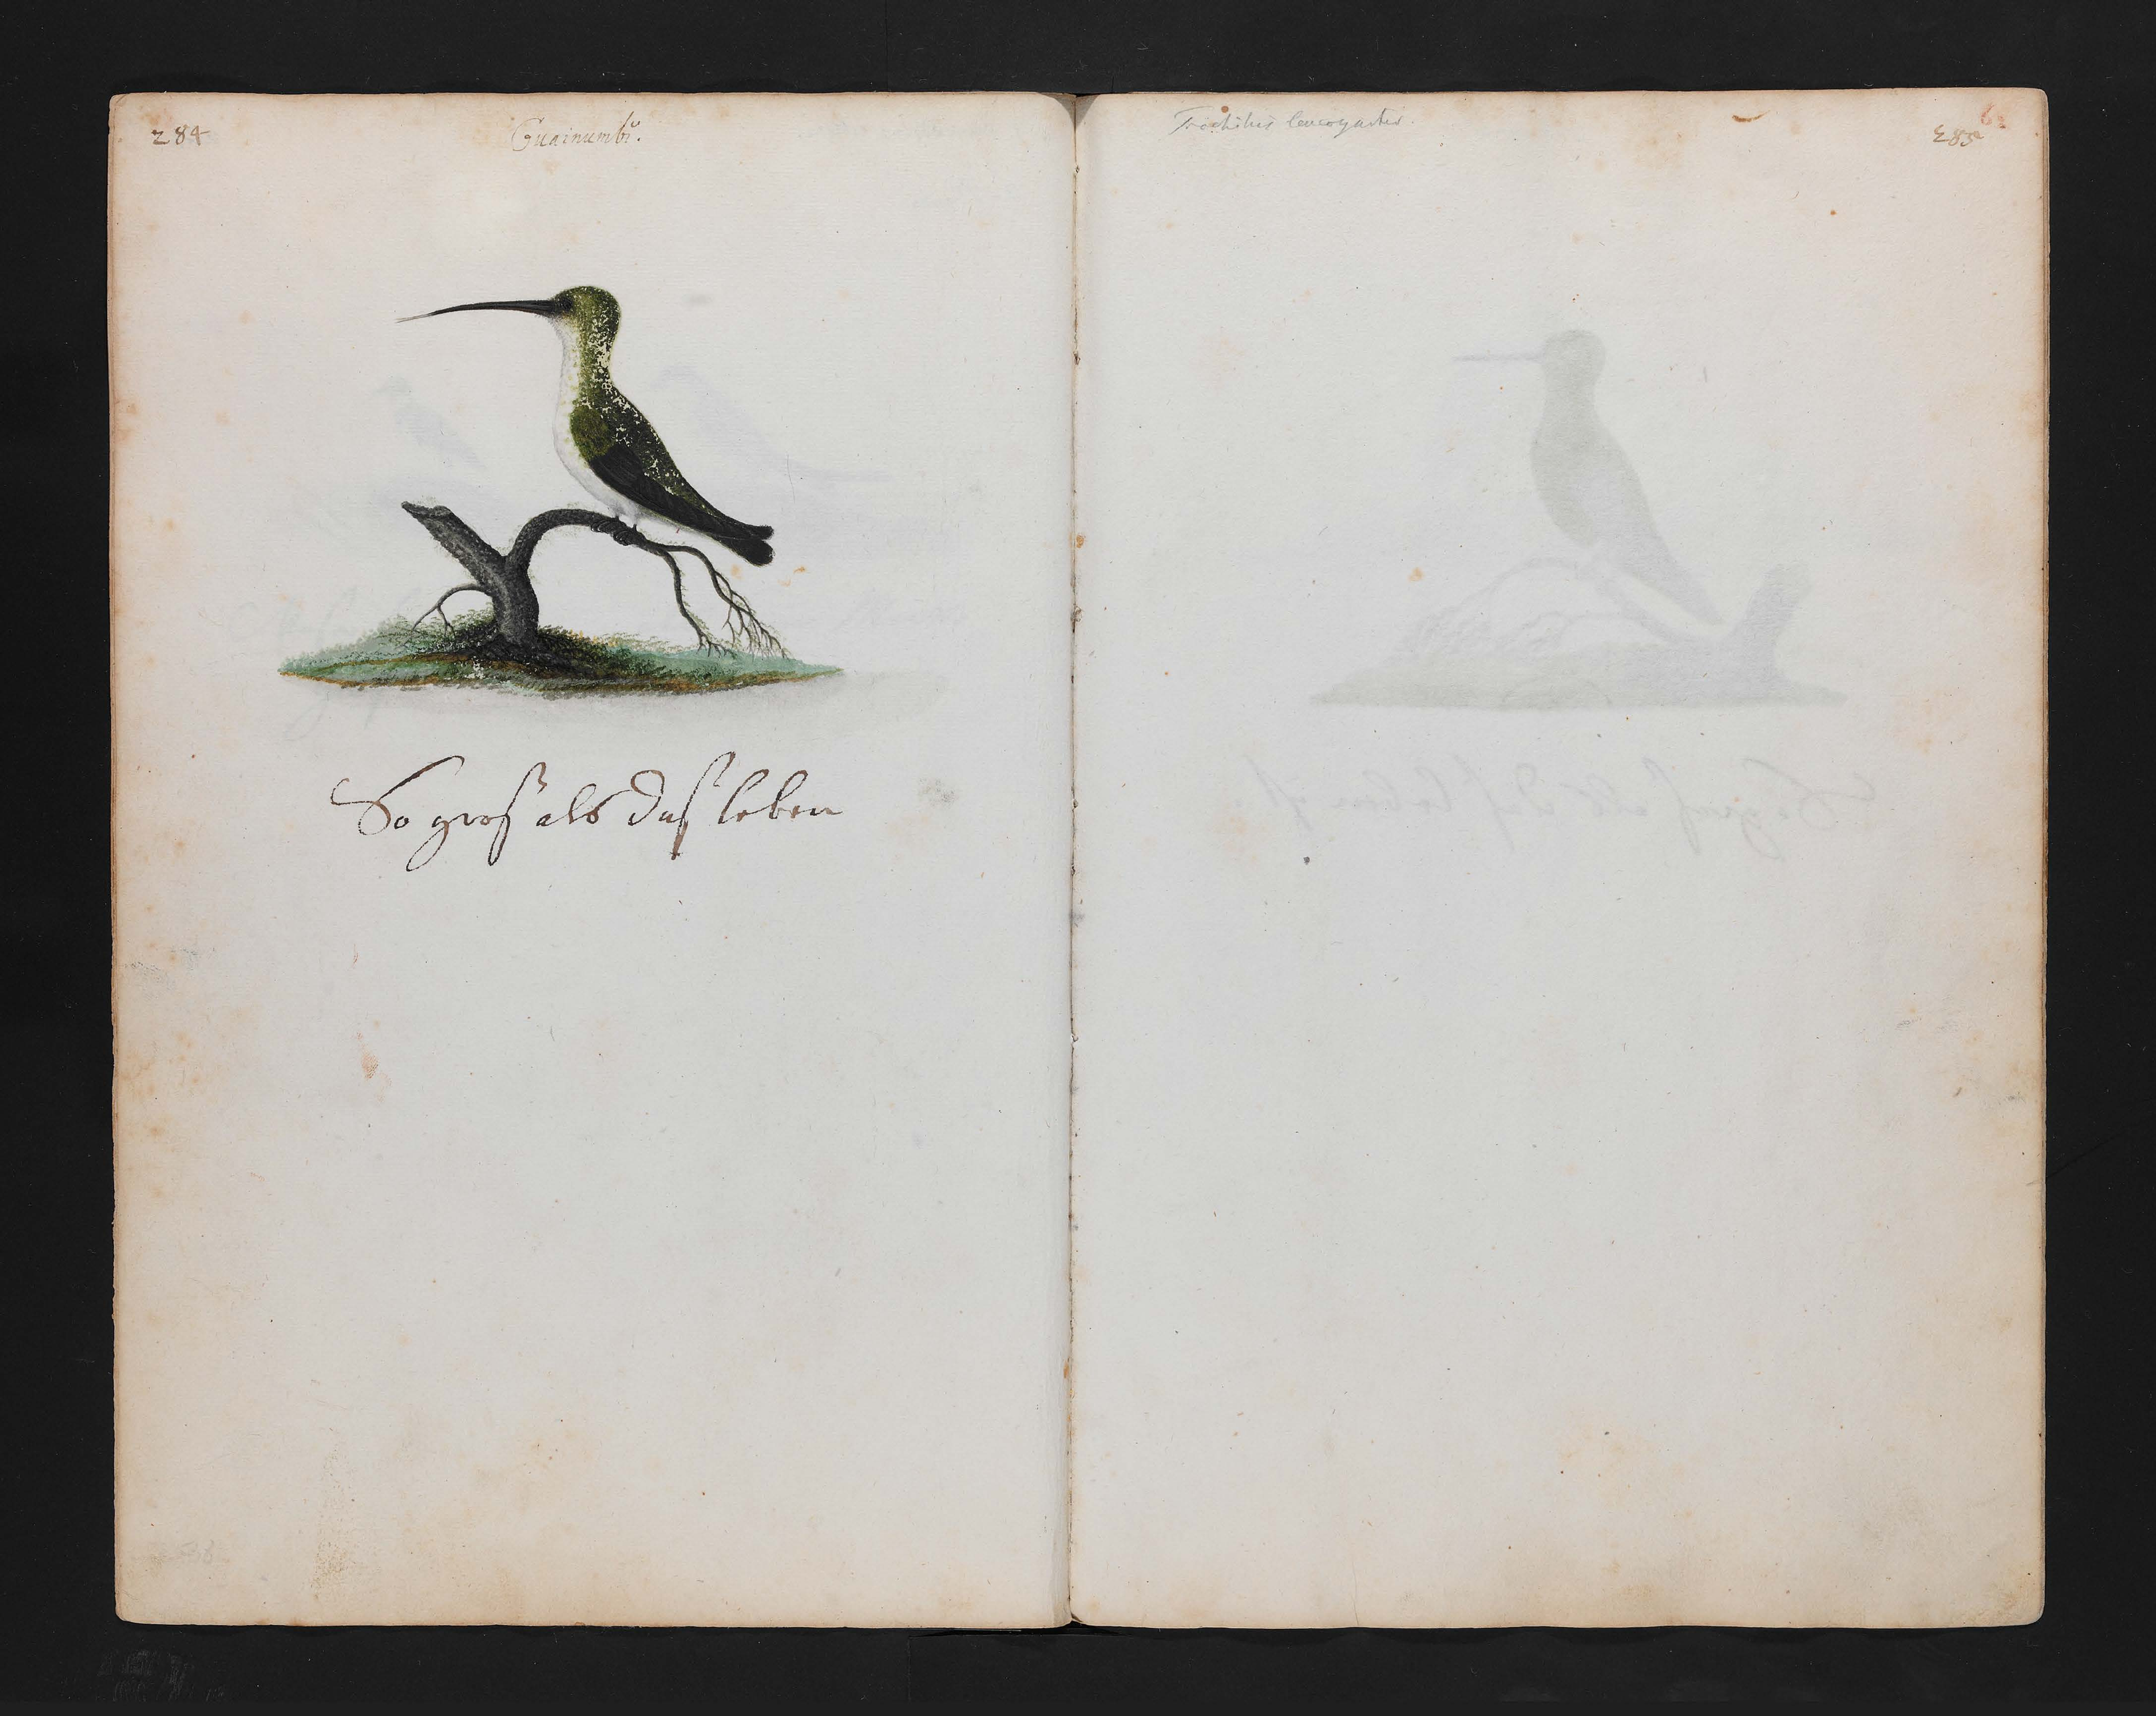 284
Guainumbi.
So gros als das leben
Trochilus leucogaster.
285